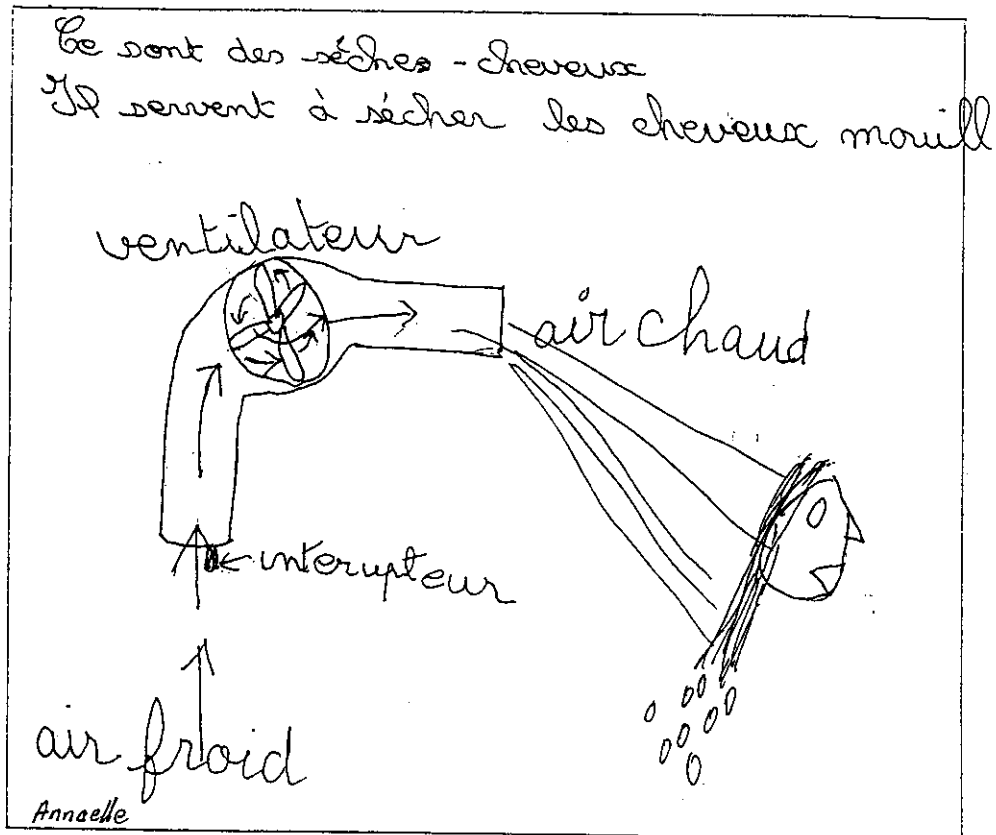 Ce sont des sèches-cheveux
Il servent à sécher les cheveux mouill
ventilateur
air chaud
interupteur
air froid
Annaelle